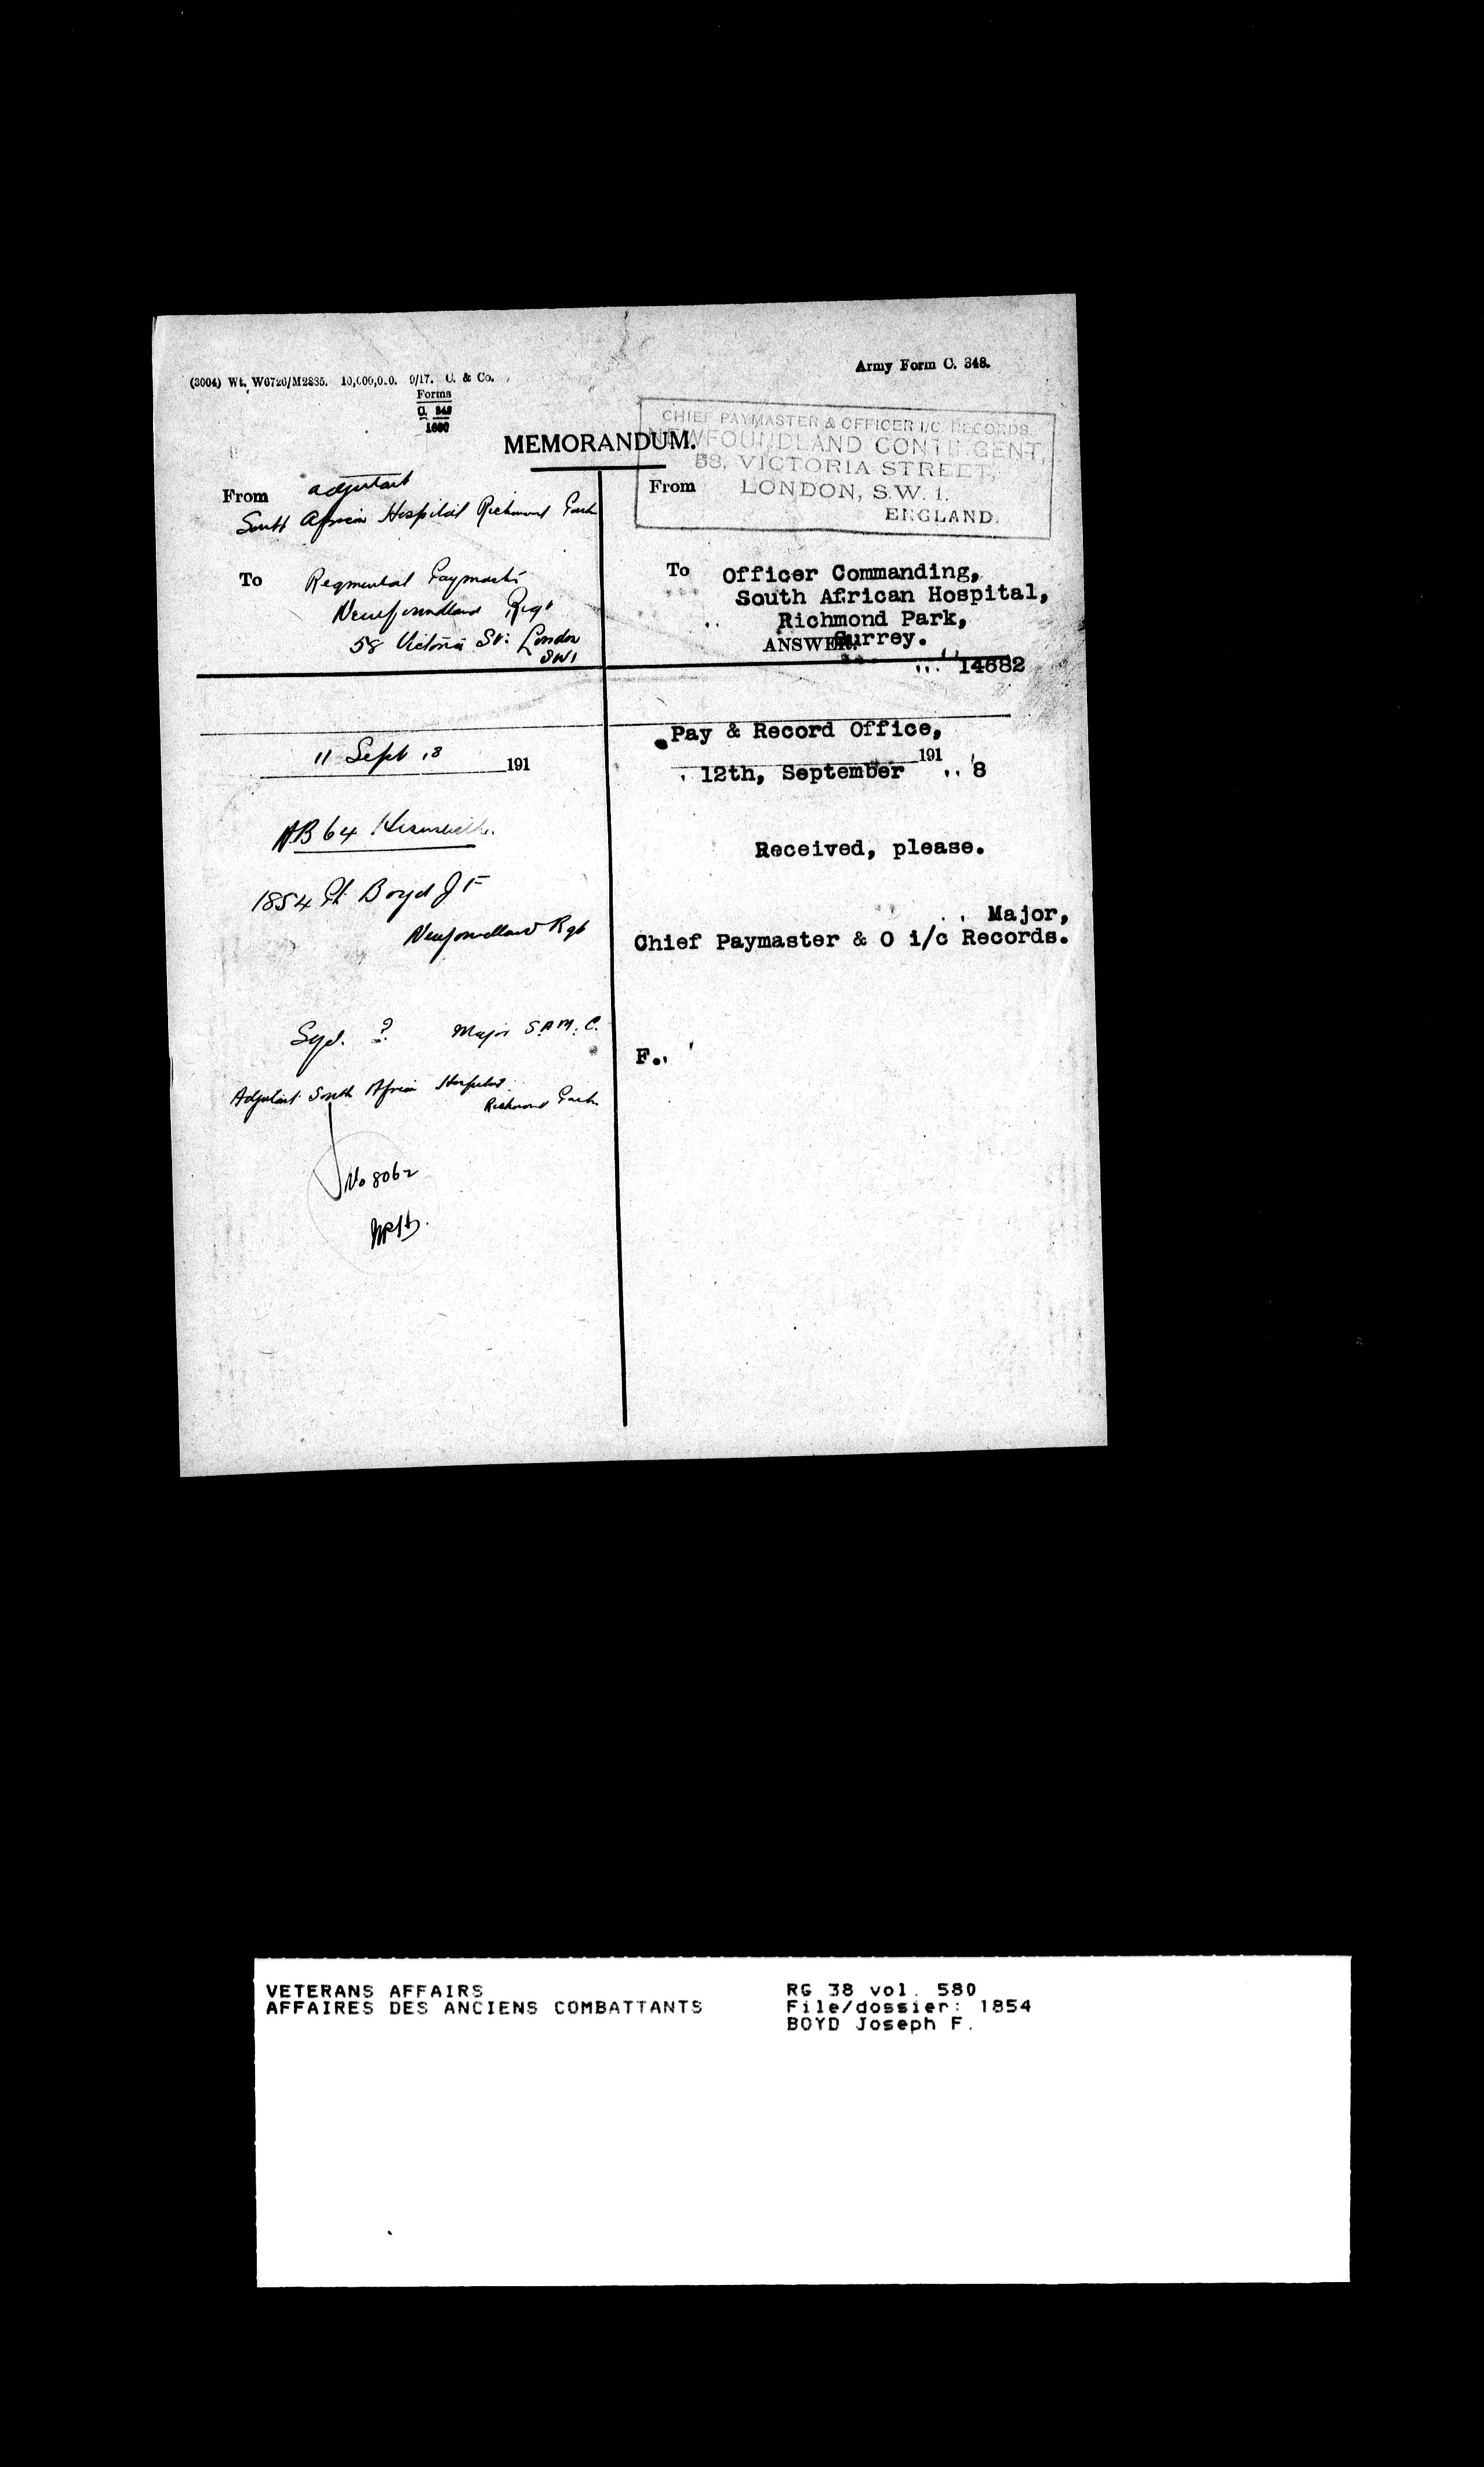 Army Form C. 348.
(3004) Wt. W6726/M2885. 10,000,0.0. 9/17. C. & Co.
Forms
C. 348
1680
MEMORANDUM.
From adjutant
South African Hospital Richmond Park
To Regimental Paymaster
Newfoundland Regt
58 Victoria St: London
SW1
11 Sept 18 191
AB 64 Herewith.
1854 Pt Boyd J F
Newfoundland Rgt
Sgd. ? Major S.A.M.C.
Adjutant South African Hospital
Richmond Park
No 8062
CHIEF PAYMASTER & OFFICER I/C RECORDS
NEWFOUNDLAND CONTINGENT,
58, VICTORIA STREET,
From LONDON, S.W. 1.
ENGLAND.
To Officer Commanding,
South African Hospital,
Richmond Park,
Surrey.
ANSWER.
14682
Pay & Record Office,
12th, September 191 8
Received, please.
Major,
Chief Paymaster & O i/c Records.
F.
VETERANS AFFAIRS
AFFAIRES DES ANCIENS COMBATTANTS
RG 38 vol. 580
File/dossier: 1854
BOYD Joseph F.